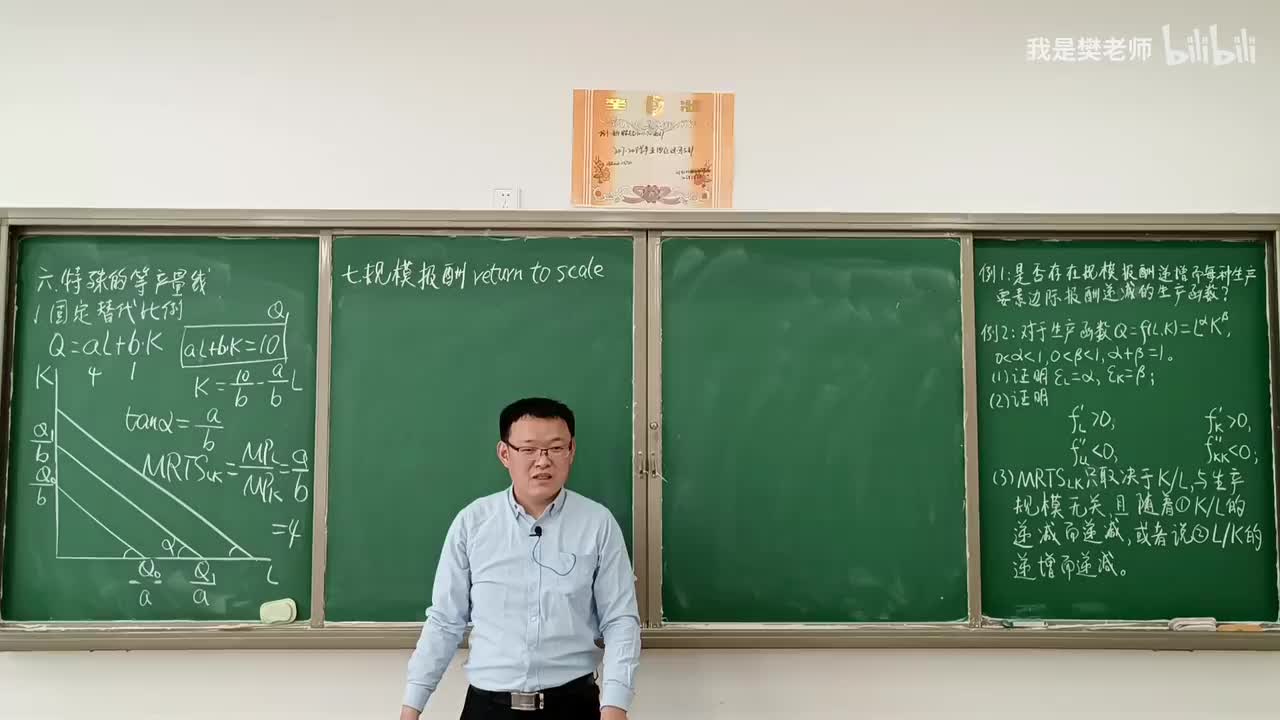 我是樊老师 bilibili
六.特殊的等产量线
1.固定替代比例
Q=aL+b·K
aL+bK=10
Q1
4 1
K
K=10/b-a/b L
tanα=a/b
MRTS_LK=MP_L/MP_K=a/b
=4
Q1/b
Q0/b
α
Q0/a
Q1/a
L
七.规模报酬 return to scale
例1:是否存在规模报酬递增而每种生产
要素边际报酬递减的生产函数?
例2:对于生产函数Q=f(L,K)=L^αK^β,
0<α<1,0<β<1,α+β=1。
(1)证明 ε_L=α, ε_K=β;
(2)证明
f'_L>0, f'_K>0,
f''_LL<0, f''_KK<0;
(3)MRTS_LK只取决于K/L,与生产
规模无关,且随着①K/L的
递减而递减,或者说②L/K的
递增而递减。